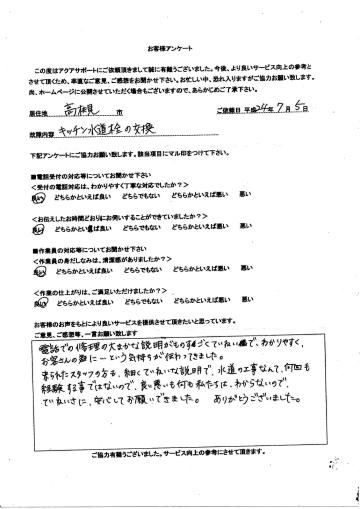 お客様アンケート
この度はアクアサポートにご依頼頂きまして誠に有難うございました。今後、より良いサービス向上の参考と
させて頂くため、率直なご意見、ご感想をお聞かせ下さい。お忙しい中、恐れ入りますがご協力お願い致します。
尚、ホームページに公開させていただく場合もございますので、あらかじめご了承下さい。
居住地 高槻 市 ご依頼日 平成24年7月5日
故障内容 キッチン水道栓の交換
下記アンケートにご協力お願い致します。該当項目にマル印をつけて下さい。
■電話受付の対応等についてお聞かせ下さい
<受付の電話対応は、わかりやすく丁寧な対応でしたか?>
良い どちらかといえば良い どちらでもない どちらかといえば悪い 悪い
<お伝えしたお時間どおりにお伺いすることができていましたか?>
良い どちらかといえば良い どちらでもない どちらかといえば悪い 悪い
■作業員の対応等についてお聞かせ下さい
<作業員の身だしなみは、清潔感がありましたか?>
良い どちらかといえば良い どちらでもない どちらかといえば悪い 悪い
<作業の仕上がりは、ご満足いただけましたか?>
良い どちらかといえば良い どちらでもない どちらかといえば悪い 悪い
お客様のお声をもとにより良いサービスを提供させて頂きたいと思っています。
ご意見、ご感想等、一言お願い致します
電話での修理の大まかな説明がものすごくていねいで、わかりやすく、
お客さんの為に一という気持ちが伝わってきました。
来られたスタッフの方も、細くていねいな説明で、水道の工事なんて、何回も
経験する事ではないので、良い悪いも何も私たちは、わからないので、
ていねいさに、安心してお願いできました。 ありがとうございました。
ご協力有難うございました。サービス向上の参考にさせて頂きます。